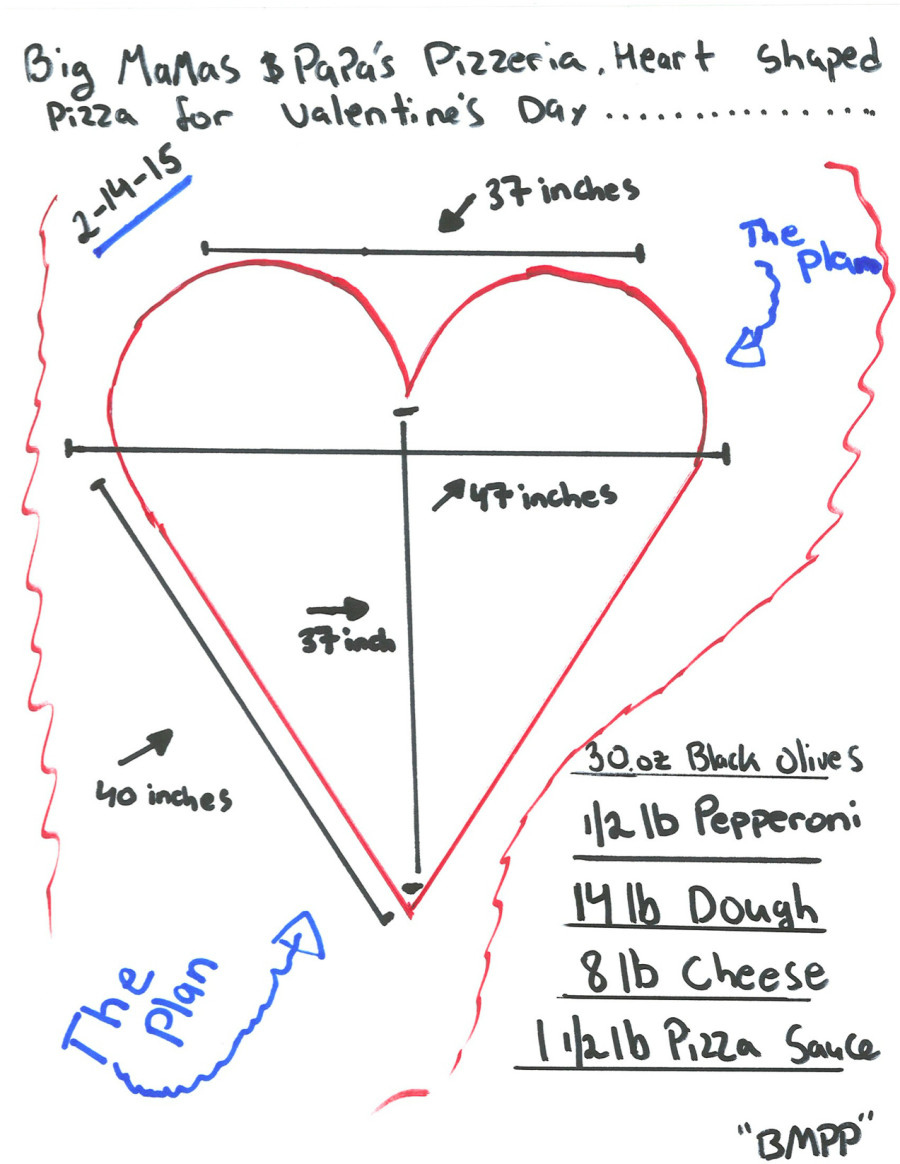 Big MaMas & PaPa's Pizzeria, Heart Shaped
Pizza for Valentine's Day ................
2-14-15
37 inches
The
Plan
47 inches
37 inch
40 inches
30.oz Black Olives
1/2 lb Pepperoni
14 lb Dough
8 lb Cheese
1 1/2 lb Pizza Sauce
The
Plan
"BMPP"